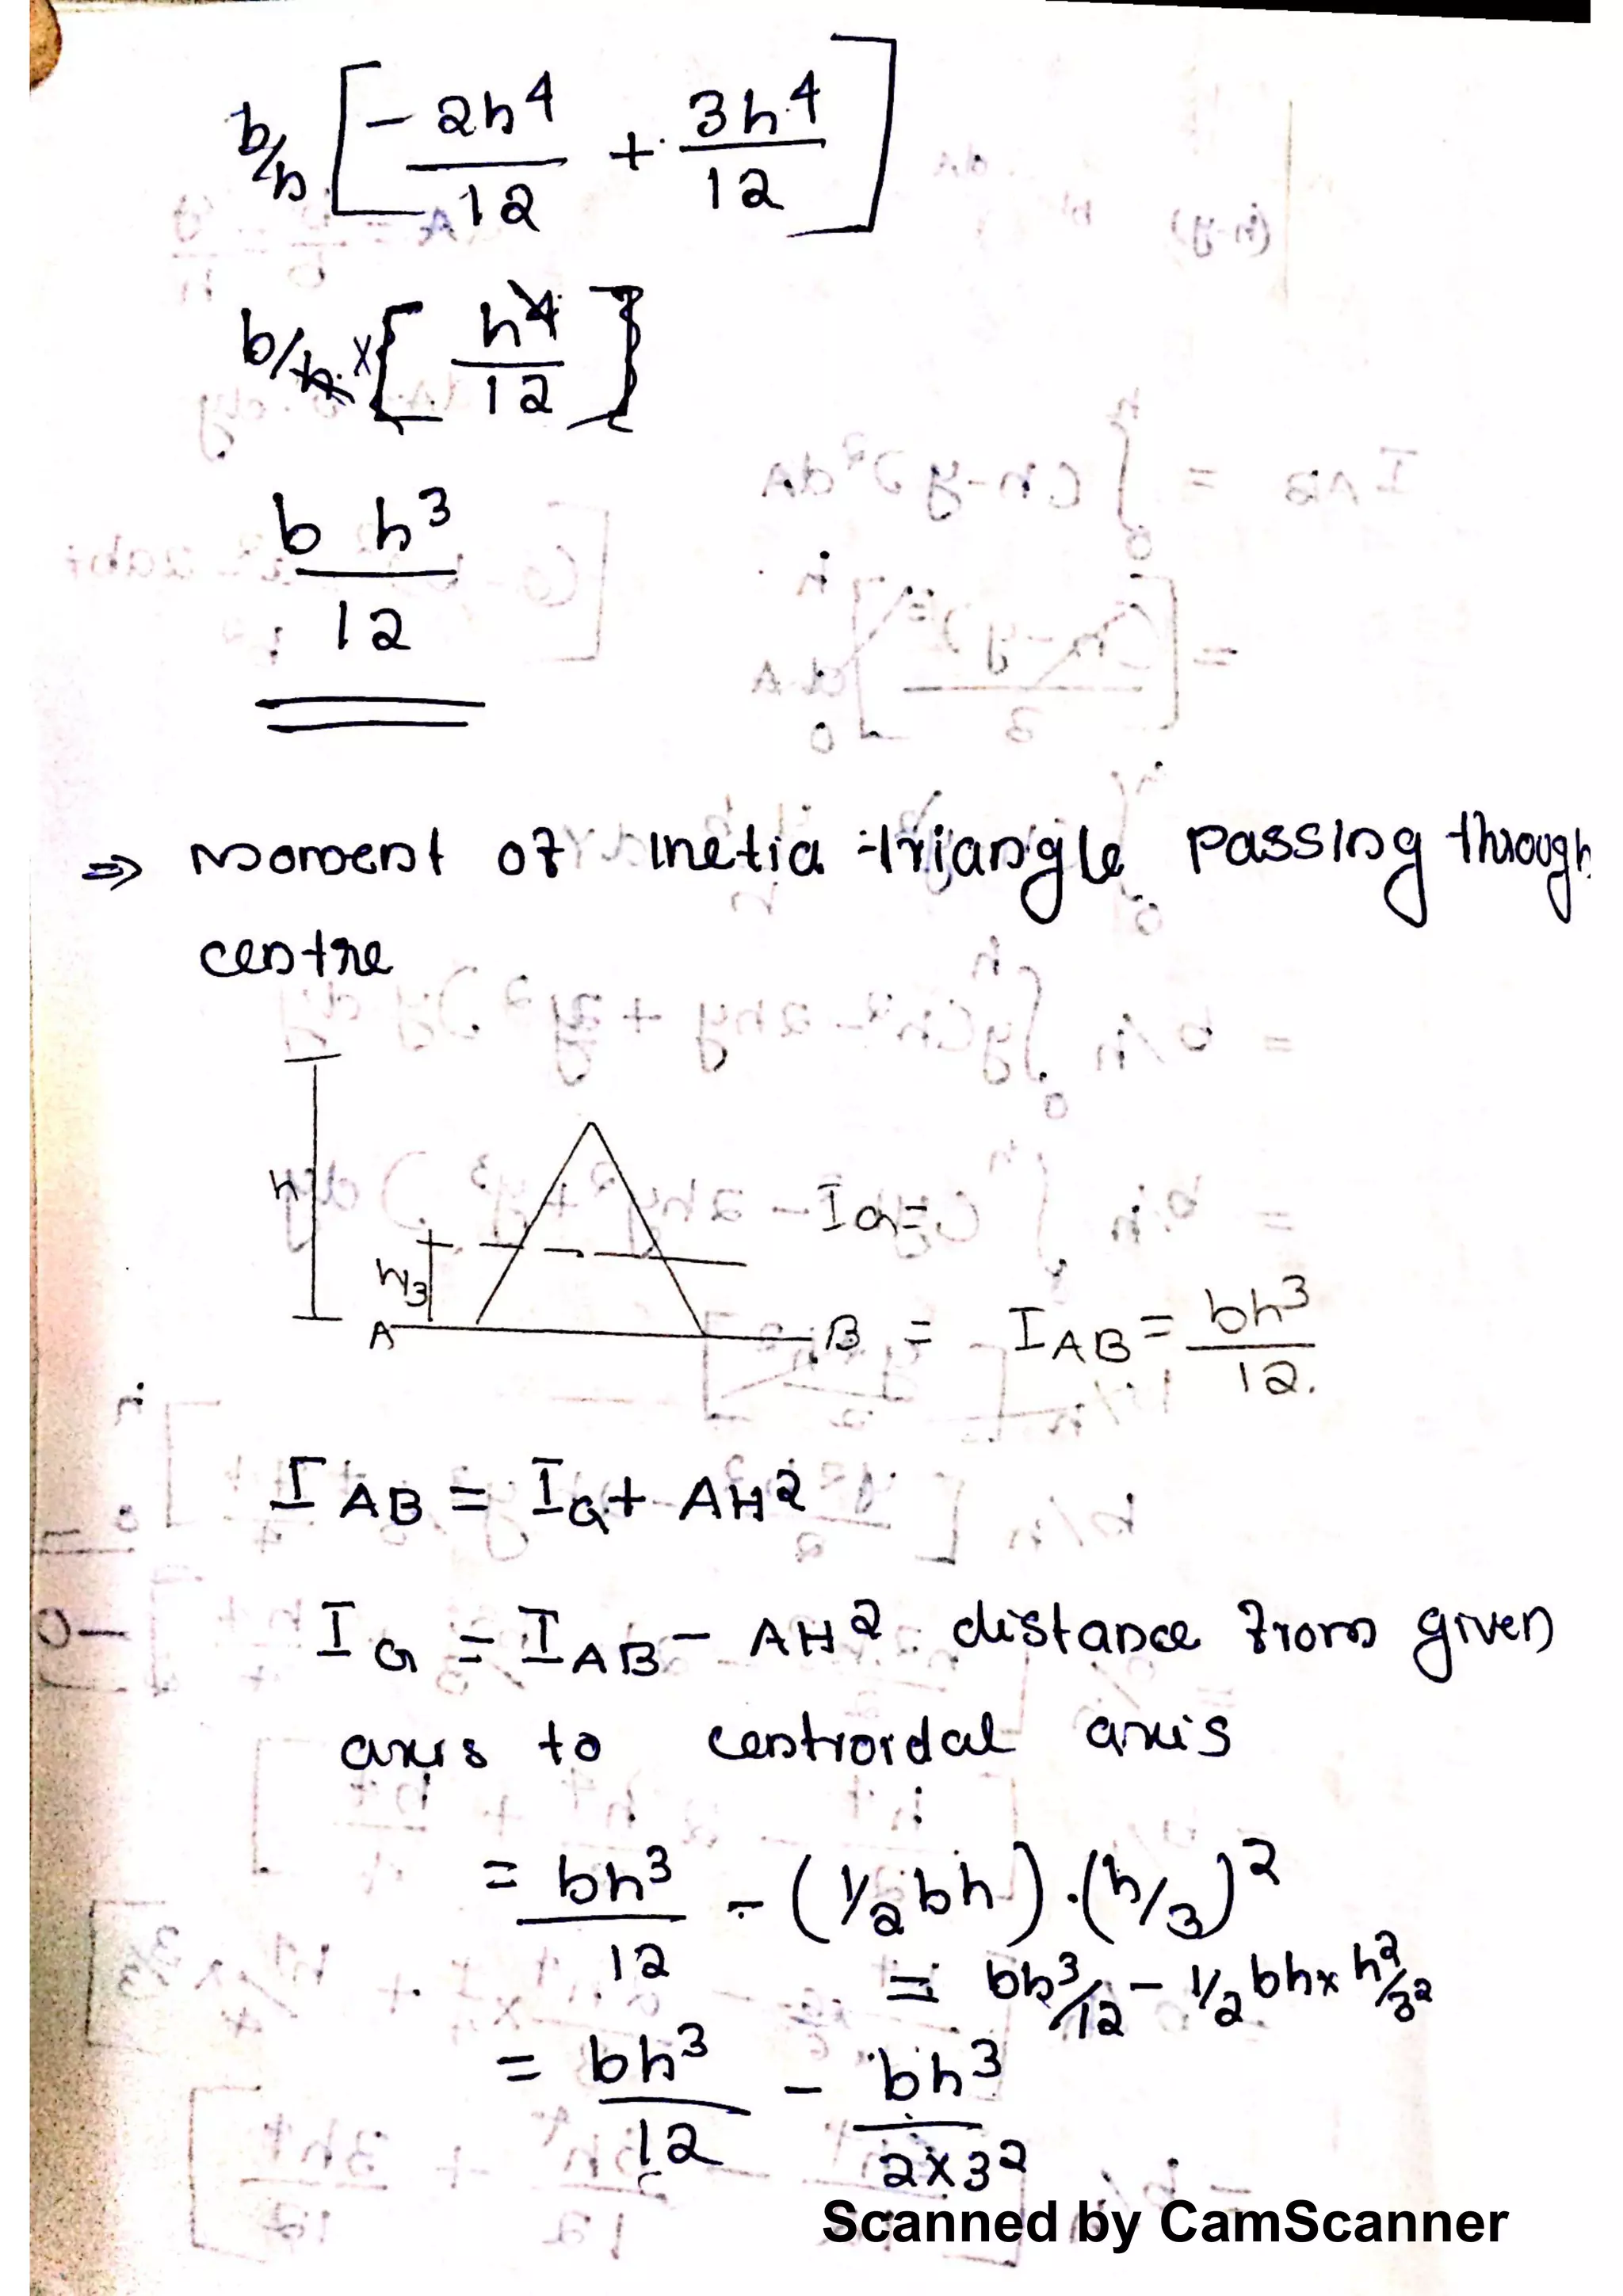 b/h [ - 2h⁴/12 + 3h⁴/12 ]
b/h × [ h⁴/12 ]
b h³/12
⇒ Moment of inetia triangle passing through
centre
h
h/3
I G =
A
B = I AB = bh³/12.
I AB = I G + AH²
I G = I AB - AH² distance from given
axis to centroidal axis
= bh³/12 - (1/2 bh) . (h/3)²
= bh³/12 - 1/2 bh x h²/3²
= bh³/12 - bh³/2x3²
Scanned by CamScanner